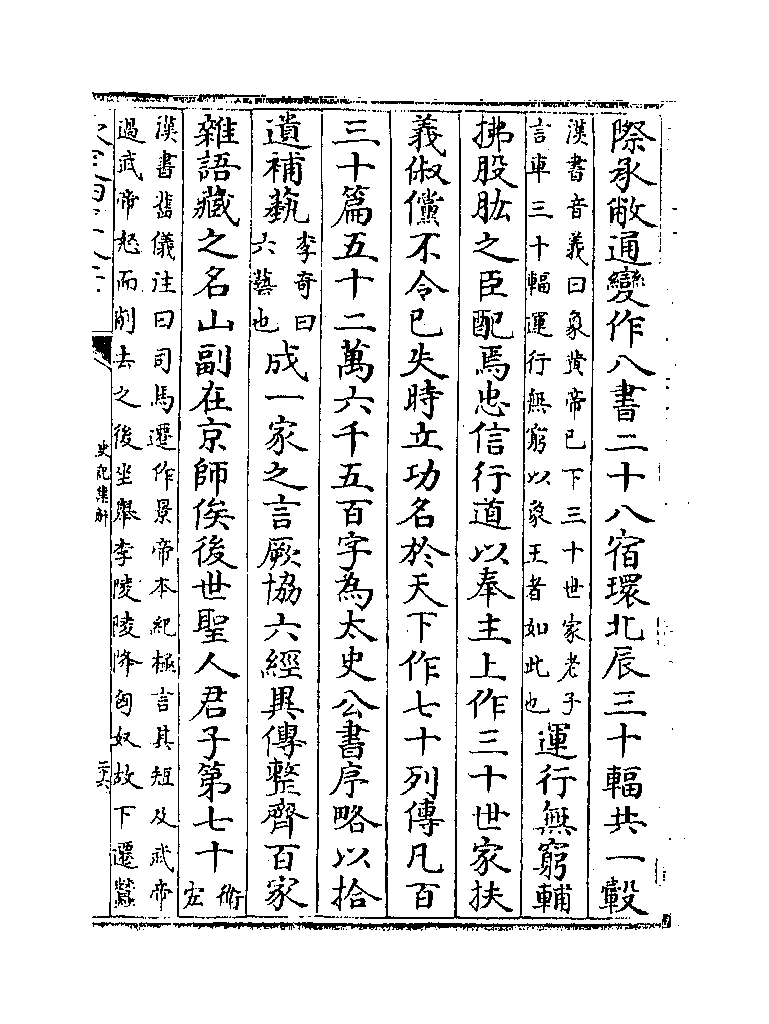 際承敝通變作八書二十八宿環北辰三十輻共一轂
漢書音義曰象黃帝已下三十世家老子
言車三十輻運行無窮以象王者如此也
運行無窮輔
拂股肱之臣配焉忠信行道以奉主上作三十世家扶
義俶儻不令已失時立功名於天下作七十列傳凡百
三十篇五十二萬六千五百字為太史公書序略以拾
遺補蓺
李奇曰
六藝也
成一家之言厥協六經異傳整齊百家
雜語藏之名山副在京師俟後世聖人君子第七十
衛
宏
漢書舊儀注曰司馬遷作景帝本紀極言其短及武帝
過武帝怒而削去之後坐舉李陵陵降匈奴故下遷蠶
史記集解